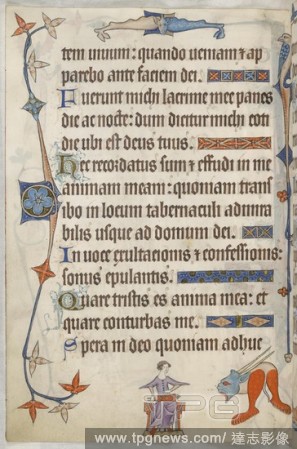 tem uiuum: quando ueniam ⁊ ap
parebo ante faciem dei.
Fuerunt michi lacrime mee panes
die ac nocte: dum dicitur michi coti
die ubi est deus tuus.
Hec recordatus sum ⁊ effudi in me
animam meam: quoniam trans
ibo in locum tabernaculi admira
bilis usque ad domum dei.
In uoce exultacionis ⁊ confessionis:
sonus epulantis.
Quare tristis es anima mea: et
quare conturbas me.
Spera in deo quoniam adhuc
TPG
www.tpgnews.com/達志影像